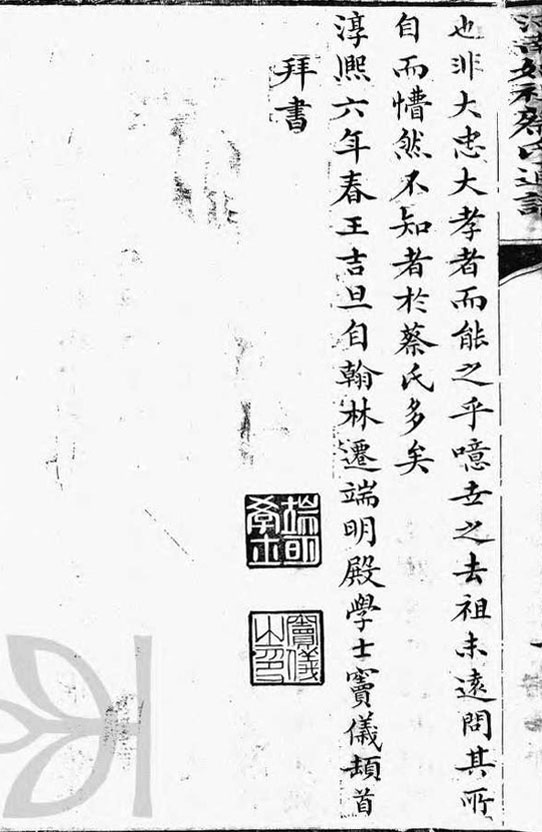 也非大忠大孝者而能之乎噫世之去祖未遠問其所
自而懵然不知者於蔡氏多矣
淳熙六年春王吉旦自翰林遷端明殿學士竇儀頓首
拜書
端明
學士
竇儀
之印